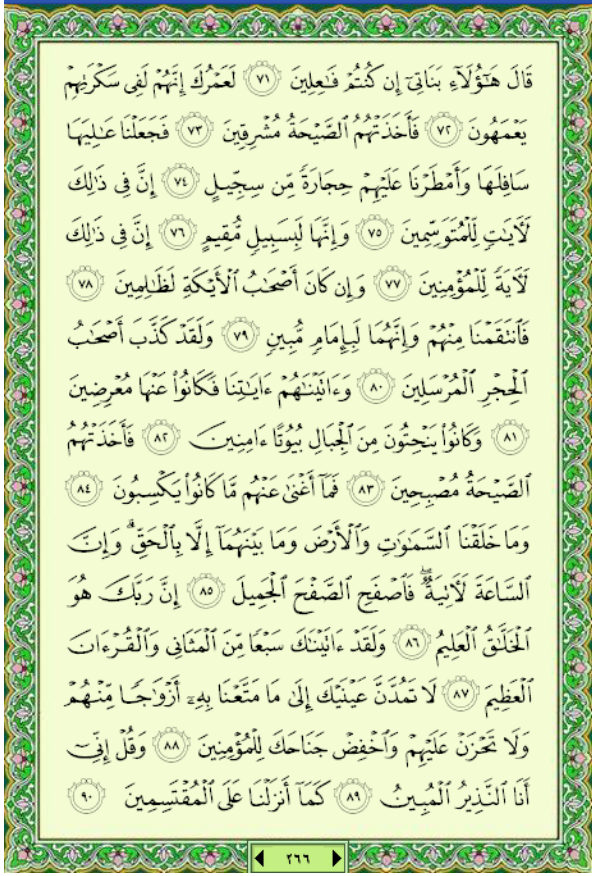 قَالَ هَـٰٓؤُلَآءِ بَنَاتِىٓ إِن كُنتُمْ فَـٰعِلِينَ ٧١ لَعَمْرُكَ إِنَّهُمْ لَفِى سَكْرَتِهِمْ
يَعْمَهُونَ ٧٢ فَأَخَذَتْهُمُ ٱلصَّيْحَةُ مُشْرِقِينَ ٧٣ فَجَعَلْنَا عَـٰلِيَهَا
سَافِلَهَا وَأَمْطَرْنَا عَلَيْهِمْ حِجَارَةً مِّن سِجِّيلٍ ٧٤ إِنَّ فِى ذَٰلِكَ
لَـَٔايَـٰتٍ لِّلْمُتَوَسِّمِينَ ٧٥ وَإِنَّهَا لَبِسَبِيلٍ مُّقِيمٍ ٧٦ إِنَّ فِى ذَٰلِكَ
لَـَٔايَةً لِّلْمُؤْمِنِينَ ٧٧ وَإِن كَانَ أَصْحَـٰبُ ٱلْأَيْكَةِ لَظَـٰلِمِينَ ٧٨
فَٱنتَقَمْنَا مِنْهُمْ وَإِنَّهُمَا لَبِإِمَامٍ مُّبِينٍ ٧٩ وَلَقَدْ كَذَّبَ أَصْحَـٰبُ
ٱلْحِجْرِ ٱلْمُرْسَلِينَ ٨٠ وَءَاتَيْنَـٰهُمْ ءَايَـٰتِنَا فَكَانُوا۟ عَنْهَا مُعْرِضِينَ
٨١ وَكَانُوا۟ يَنْحِتُونَ مِنَ ٱلْجِبَالِ بُيُوتًا ءَامِنِينَ ٨٢ فَأَخَذَتْهُمُ
ٱلصَّيْحَةُ مُصْبِحِينَ ٨٣ فَمَآ أَغْنَىٰ عَنْهُم مَّا كَانُوا۟ يَكْسِبُونَ ٨٤
وَمَا خَلَقْنَا ٱلسَّمَـٰوَٰتِ وَٱلْأَرْضَ وَمَا بَيْنَهُمَآ إِلَّا بِٱلْحَقِّ ۗ وَإِنَّ
ٱلسَّاعَةَ لَـَٔاتِيَةٌ ۖ فَٱصْفَحِ ٱلصَّفْحَ ٱلْجَمِيلَ ٨٥ إِنَّ رَبَّكَ هُوَ
ٱلْخَلَّـٰقُ ٱلْعَلِيمُ ٨٦ وَلَقَدْ ءَاتَيْنَـٰكَ سَبْعًا مِّنَ ٱلْمَثَانِى وَٱلْقُرْءَانَ
ٱلْعَظِيمَ ٨٧ لَا تَمُدَّنَّ عَيْنَيْكَ إِلَىٰ مَا مَتَّعْنَا بِهِۦٓ أَزْوَٰجًا مِّنْهُمْ
وَلَا تَحْزَنْ عَلَيْهِمْ وَٱخْفِضْ جَنَاحَكَ لِلْمُؤْمِنِينَ ٨٨ وَقُلْ إِنِّىٓ
أَنَا ٱلنَّذِيرُ ٱلْمُبِينُ ٨٩ كَمَآ أَنزَلْنَا عَلَى ٱلْمُقْتَسِمِينَ ٩٠
٢٦٦